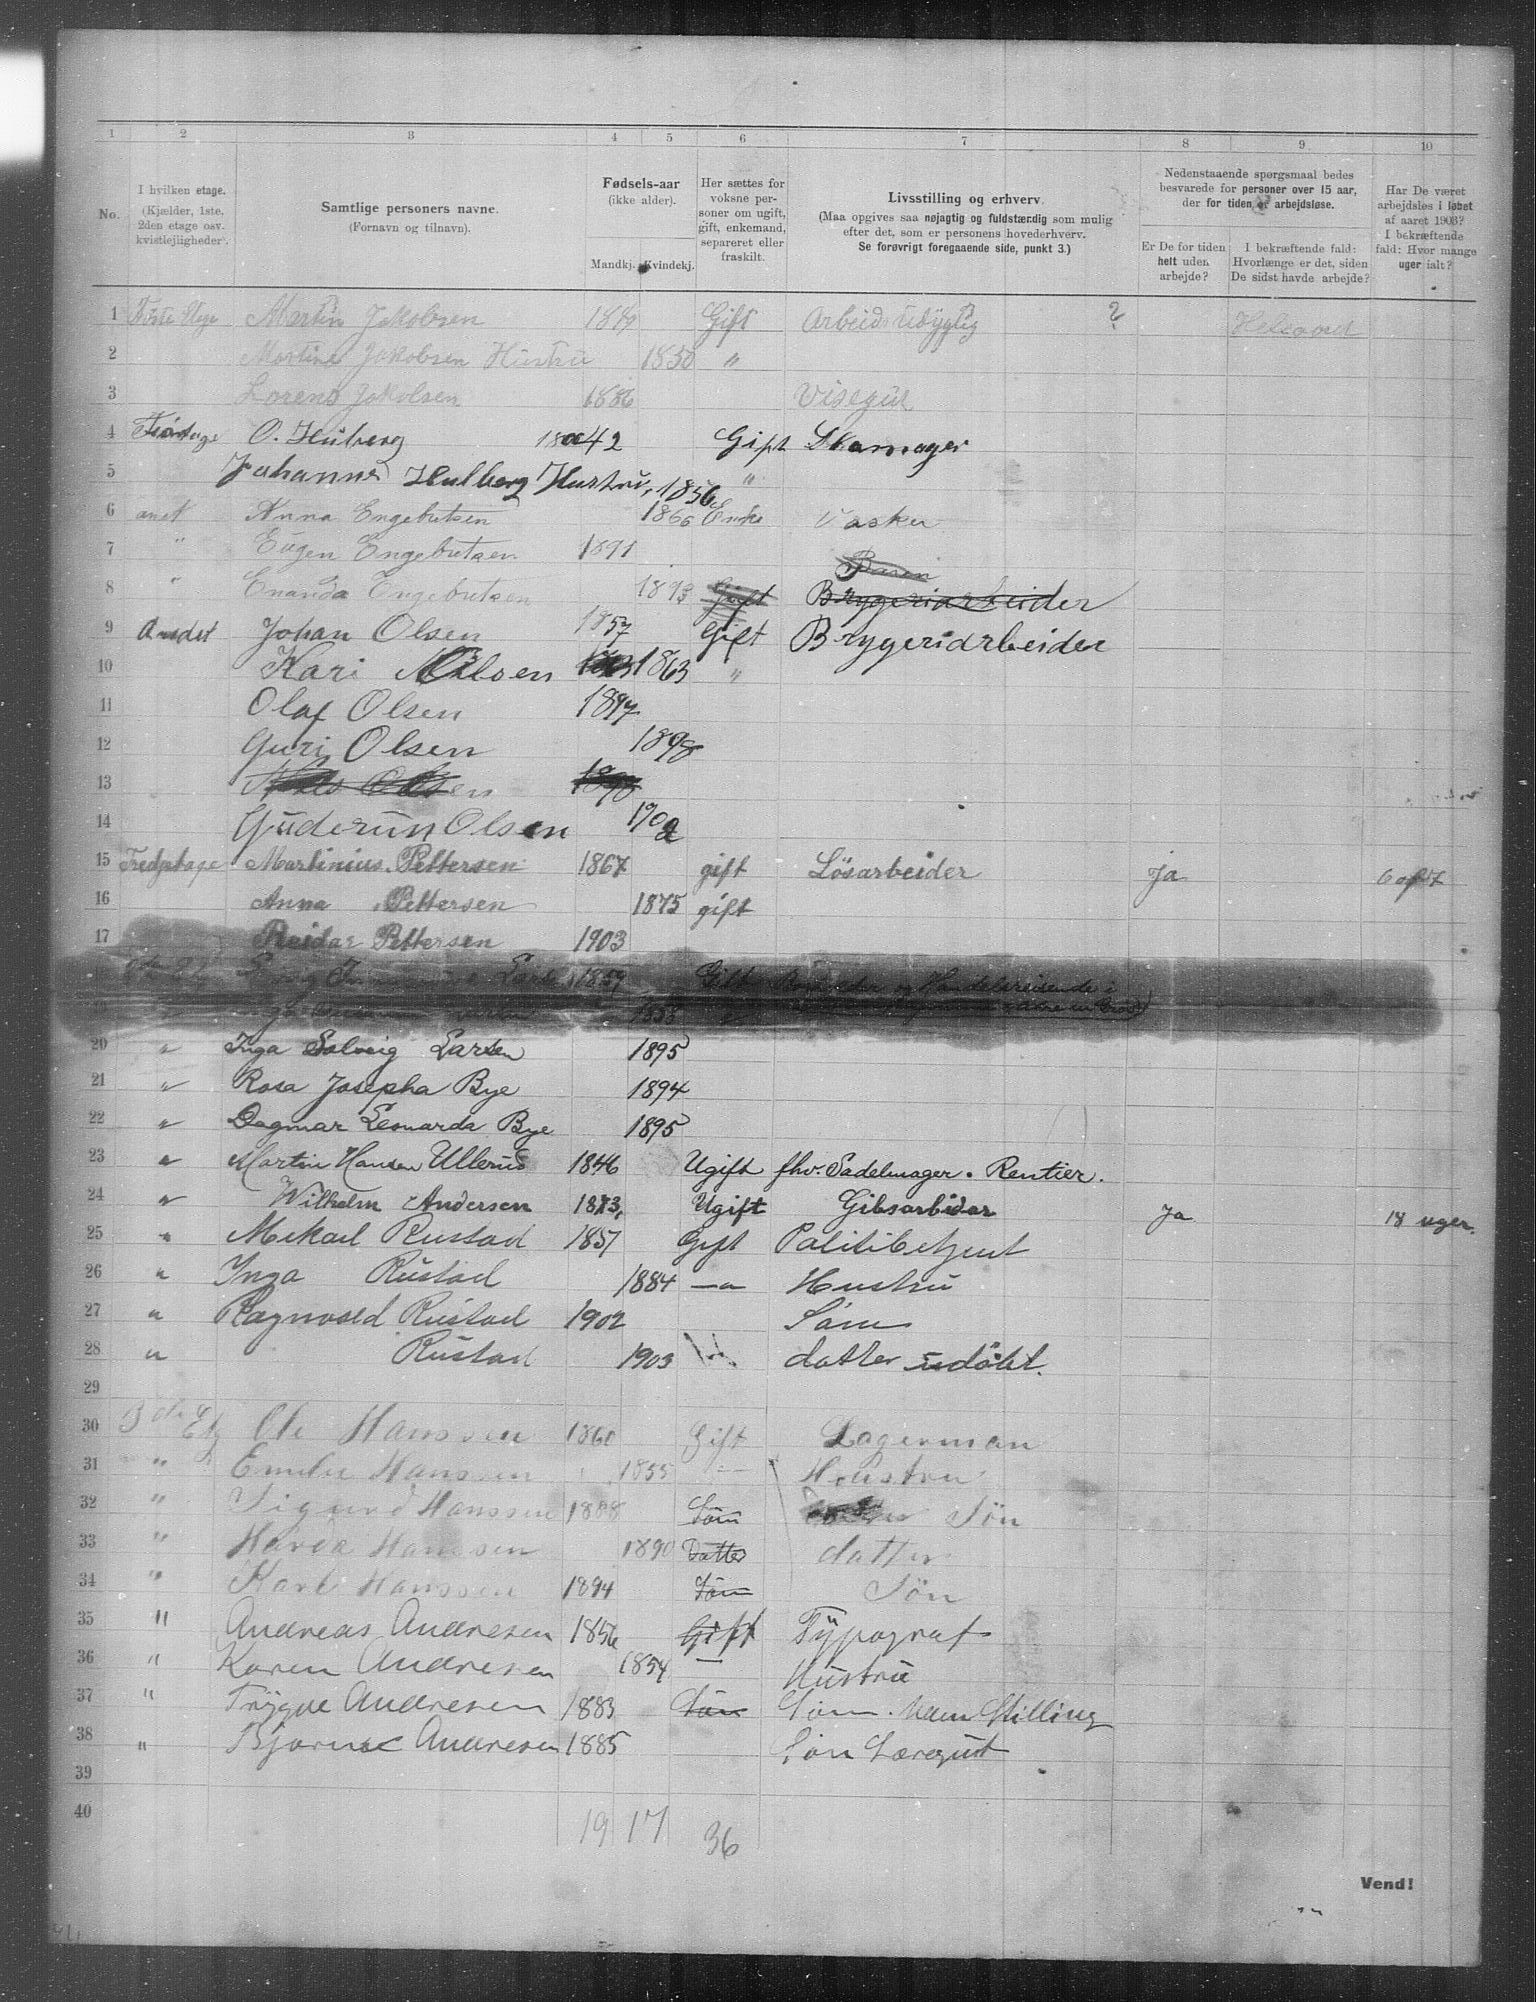 1 2 3 4 5 6 7 8 9 10
No.
I hvilken etage.
(Kjælder, 1ste,
2den etage osv.
kvistleiligheder).
Samtlige personers navne.
(Fornavn og tilnavn).
Fødsels-aar
(ikke alder).
Mandkj. Kvindekj.
Her sættes for
voksne per-
soner om ugift,
gift, enkemand,
separeret eller
fraskilt.
Livsstilling og erhverv.
(Maa opgives saa nøjagtig og fuldstændig som mulig
efter det, som er personens hovederhverv.
Se forøvrigt foregaaende side, punkt 3.)
Nedenstaaende spørgsmaal bedes
besvarede for personer over 15 aar,
der for tiden er arbejdsløse.
Er De for tiden
helt uden
arbejde?
I bekræftende fald:
Hvorlænge er det, siden
De sidst havde arbejde?
Har De været
arbejdsløs i løbet
af aaret 1903?
I bekræftende
fald: Hvor mange
uger ialt?
1 Martin Jakobsen Gift Arbeidsudygtig ?
2 Martine Jakobsen Hustru 1850 "
3 Lorens Jakobsen 1886 Visegut
4 O. Hulberg 1842 Gift Skomager
5 Johanne Hulberg Hustru, 1856 "
6 anet Anna Engebretsen 1866 Enke Vasker
7 " Eugen Engebretsen 1891
8 " Engebretsen 1893 Gift Bryggeriarbeider
9 Andet Johan Olsen 1857 Gift Bryggeriarbeider
10 Kari Olsen 1863 "
11 Olaf Olsen 1897
12 Guri Olsen 1898
13 Olsen 1898
14 Guderun Olsen 1902
15 Tredjetage Martinius Pettersen 1867 gift Løsarbeider ja
16 Anna Pettersen 1875 gift
17 Reidar Pettersen 1903
1859 Gift og Handelsreisende i
1858 "
20 " Inga Solveig Larsen 1895
21 " Rosa Josepha Bye 1894
22 " Dagmar Leonarda Bye 1895
23 " Martin Hansen Ullerud 1846 Ugift fhv. Sadelmager. Rentier.
24 " Wilhelm Andersen 1873, Ugift Gibsarbidar Ja 18 uger.
25 " Mekael Rustad 1857 Gift Politibetjent
26 " Inga Rustad 1884 — " Hustru
27 " Ragnvald Rustad 1902 Søn
28 " Rustad 1903 datter udøbt.
29
30 3die Etg Ole Hanssen 1860 Gift Lagerman
31 " Emilie Hanssen 1855 — Houstru
32 " Sigurd Hanssen 1888 Søn Søn
33 " Hanssen 1890 Datter datter
34 " Karl Hanssen 1894 Søn Søn
35 " Andreas Andresen 1856 Gift Typograf
36 " Karen Andresen 1854 — Hustru
37 " Trygve Andresen 1883 Søn Søn. Uden Stilling
38 " Bjarne Andresen 1885 Søn Læregut
39
40
19 17 36
Vend!